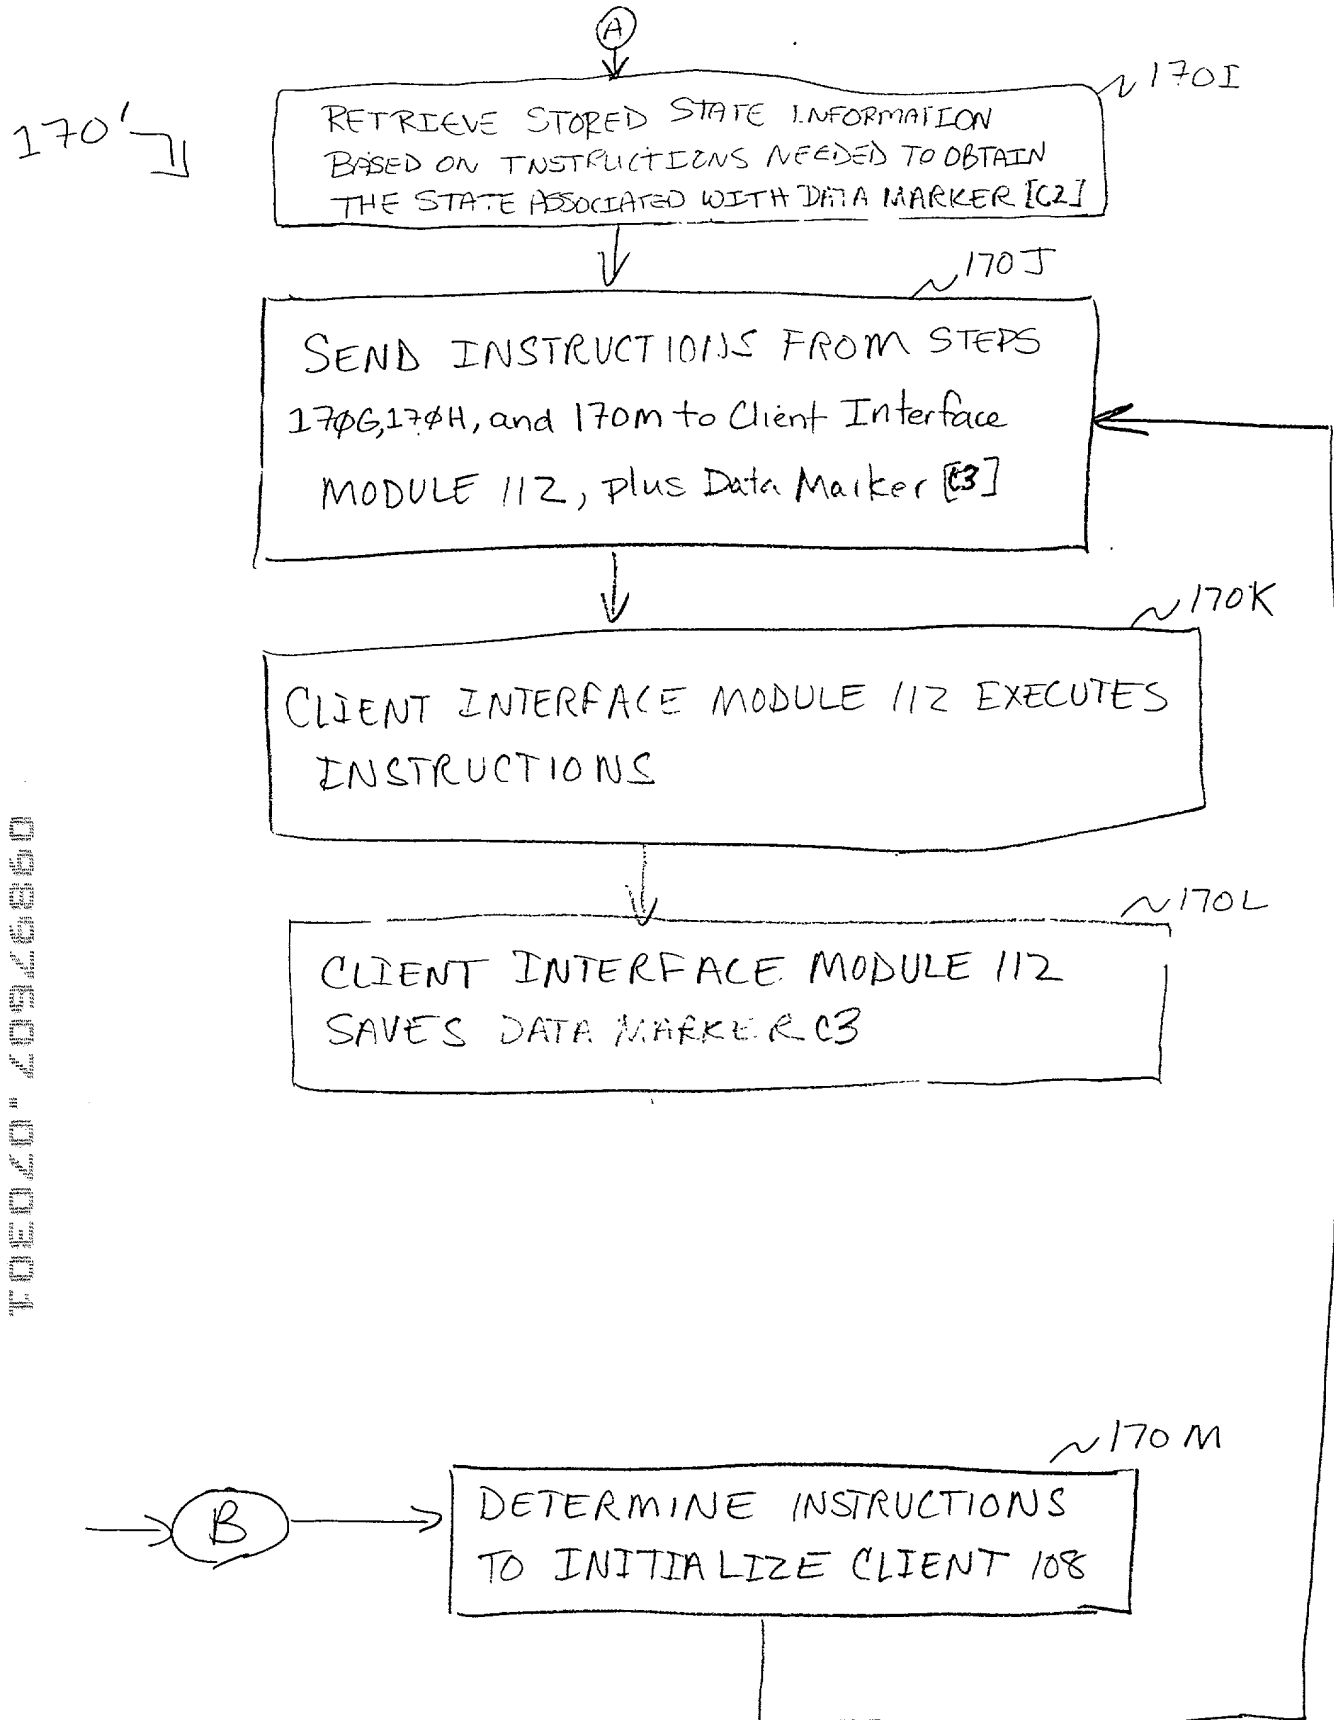 A
170I
170'
RETRIEVE STORED STATE INFORMATION
BASED ON INSTRUCTIONS NEEDED TO OBTAIN
THE STATE ASSOCIATED WITH DATA MARKER [C2]
170J
SEND INSTRUCTIONS FROM STEPS
170G, 170H, and 170M to Client Interface
MODULE 112, plus Data Marker [C3]
170K
CLIENT INTERFACE MODULE 112 EXECUTES
INSTRUCTIONS
170L
CLIENT INTERFACE MODULE 112
SAVES DATA MARKER C3
09897607.070301
170M
B
DETERMINE INSTRUCTIONS
TO INITIALIZE CLIENT 108